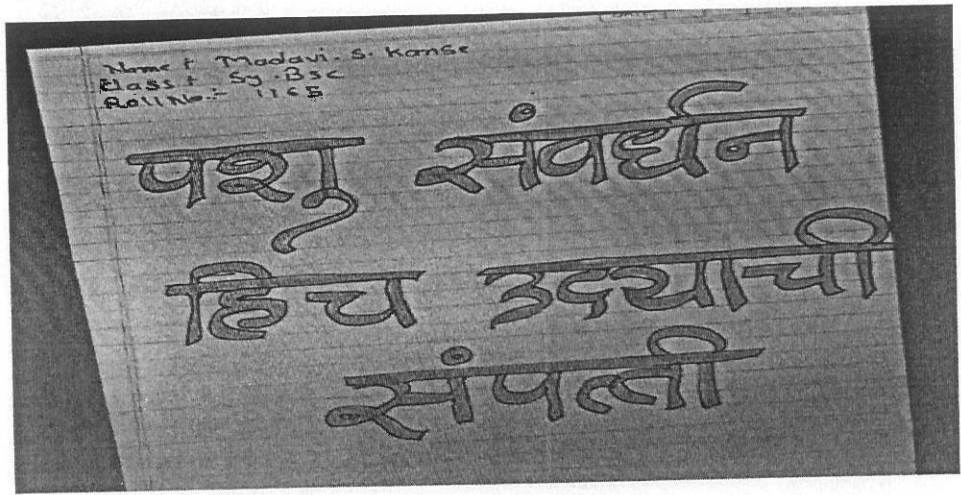 Name :- Madavi. S. Kanse
Class :- Sy. Bsc
Roll No :- 1165
पशु संवर्धन
हिच उद्याची
संपत्ती